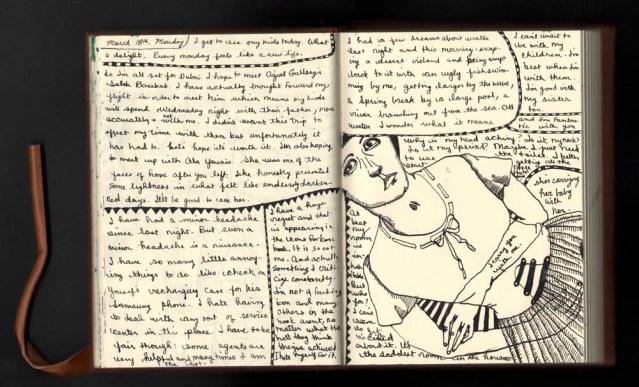 March 18th, Monday I get to see my kids today. What
a delight. Every monday feels like a new life.
So I'm all set for Dubai. I hope to meet Agial Gallery's
Saleh Barakat. I have actually brought forward my
flight in order to meet him which means my kids
will spend Wednesday night with their father, more
accurately - not with me. I didn't want this trip to
affect my time with them but unfortunately it
has had to. Let's hope it's worth it. I'm also hoping
to meet up with Ala Younis. She was one of the
of hope after you left. She honestly presented
some lightness in what felt like endless dark-
red days. It'll be good to see her.
I have had a minor headache
since last night. But even a
minor headache is a nuisance.
I have so many little annoy-
ing things to do like
recharging case for his
Samsung phone. I hate having
to deal with any sort of service
center in this place. I have to be
fair though: some agents are
very helpful and many times I am
the
I have a huge
regret and that
is appearing in
the
book. It is so not
me. And actually
something I
constantly.
I'm not
and many
others in the
book aren't, no
matter what the
hell they think
they've achieved
I hate myself for it.
I had a few dreams about water
last night and this morning:
by a desert island and being
back to it with an ugly fish
ming by me, getting larger by the wave,
a spring break by a large pool, a
river branching out from the sea.
water. I wonder what it means
I can't wait to
be with my
children. I'm
best when I'm
with them.
I'm good with
my sister
too.
and I'm
with you
Why is my head aching? Is it my neck?
Is it my period? Maybe I just need
the toilet.
she's carrying
her baby
with
her.
I carry you
with me.
At
last my
room
is
I
can't
seem to
be
excited
about it. It's
the saddest room in the house